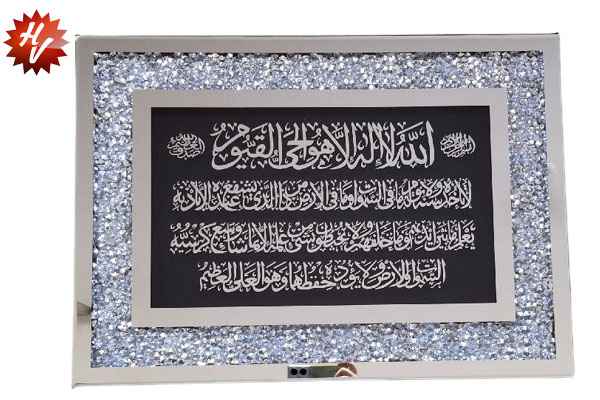 HV
الله لا إله إلا هو الحي القيوم
لا تأخذه سنة ولا نوم له ما في السموات وما في الأرض من ذا الذي يشفع عنده إلا بإذنه
يعلم ما بين أيديهم وما خلفهم ولا يحيطون بشيء من علمه إلا بما شاء وسع كرسيه
السموات والأرض ولا يؤده حفظهما وهو العلي العظيم